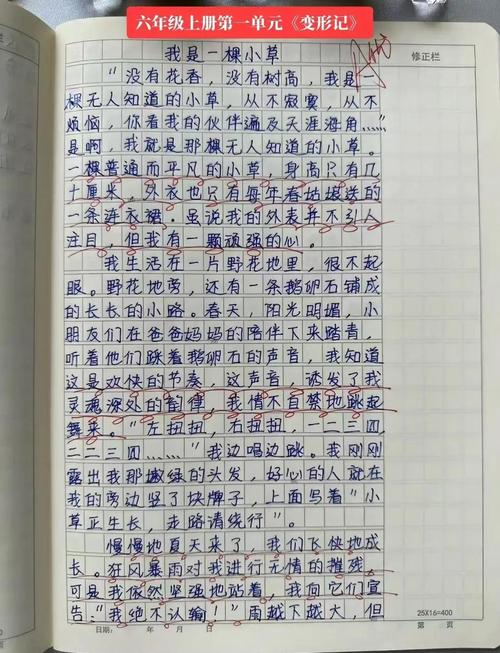 六年级上册第一单元《变形记》
我是一棵小草
修正栏
“没有花香，没有树高，我是一
棵无人知道的小草，从不寂寞，从不
烦恼，你看我的伙伴遍及天涯海角……”
是啊，我就是那棵无人知道的小草。
一棵普通而平凡的小草，身高只有几
十厘米，外衣也只有每年春姑娘送的
一条连衣裙。虽说我的外表并不引人
注目，但我有一颗顽强的心。
我生活在一片野花地里，很不起
眼。野花地旁，还有一条鹅卵石铺成
的长长的小路。春天，阳光明媚，小
朋友们在爸爸妈妈的陪伴下来踏青，
听着他们踩着鹅卵石的声音，我知道
这是欢快的节奏，这声音，诱发了我
灵魂深处的韵律，我情不自禁地跳起
舞来。“左扭扭，右扭扭，一二三四，
二二三四……”我边唱边跳。我刚刚
露出我那嫩绿的头发，好心的人就在
我的旁边竖了块牌子，上面写着“小
草正生长，走路请绕行”。
慢慢地夏天来了，我们飞快地成
长。狂风暴雨对我进行无情的摧残，
可是我依然坚强地站着，我向它们宣
告：“我绝不认输！”雨越下越大，但
25X16=400
日期： 年 月 日
第 页